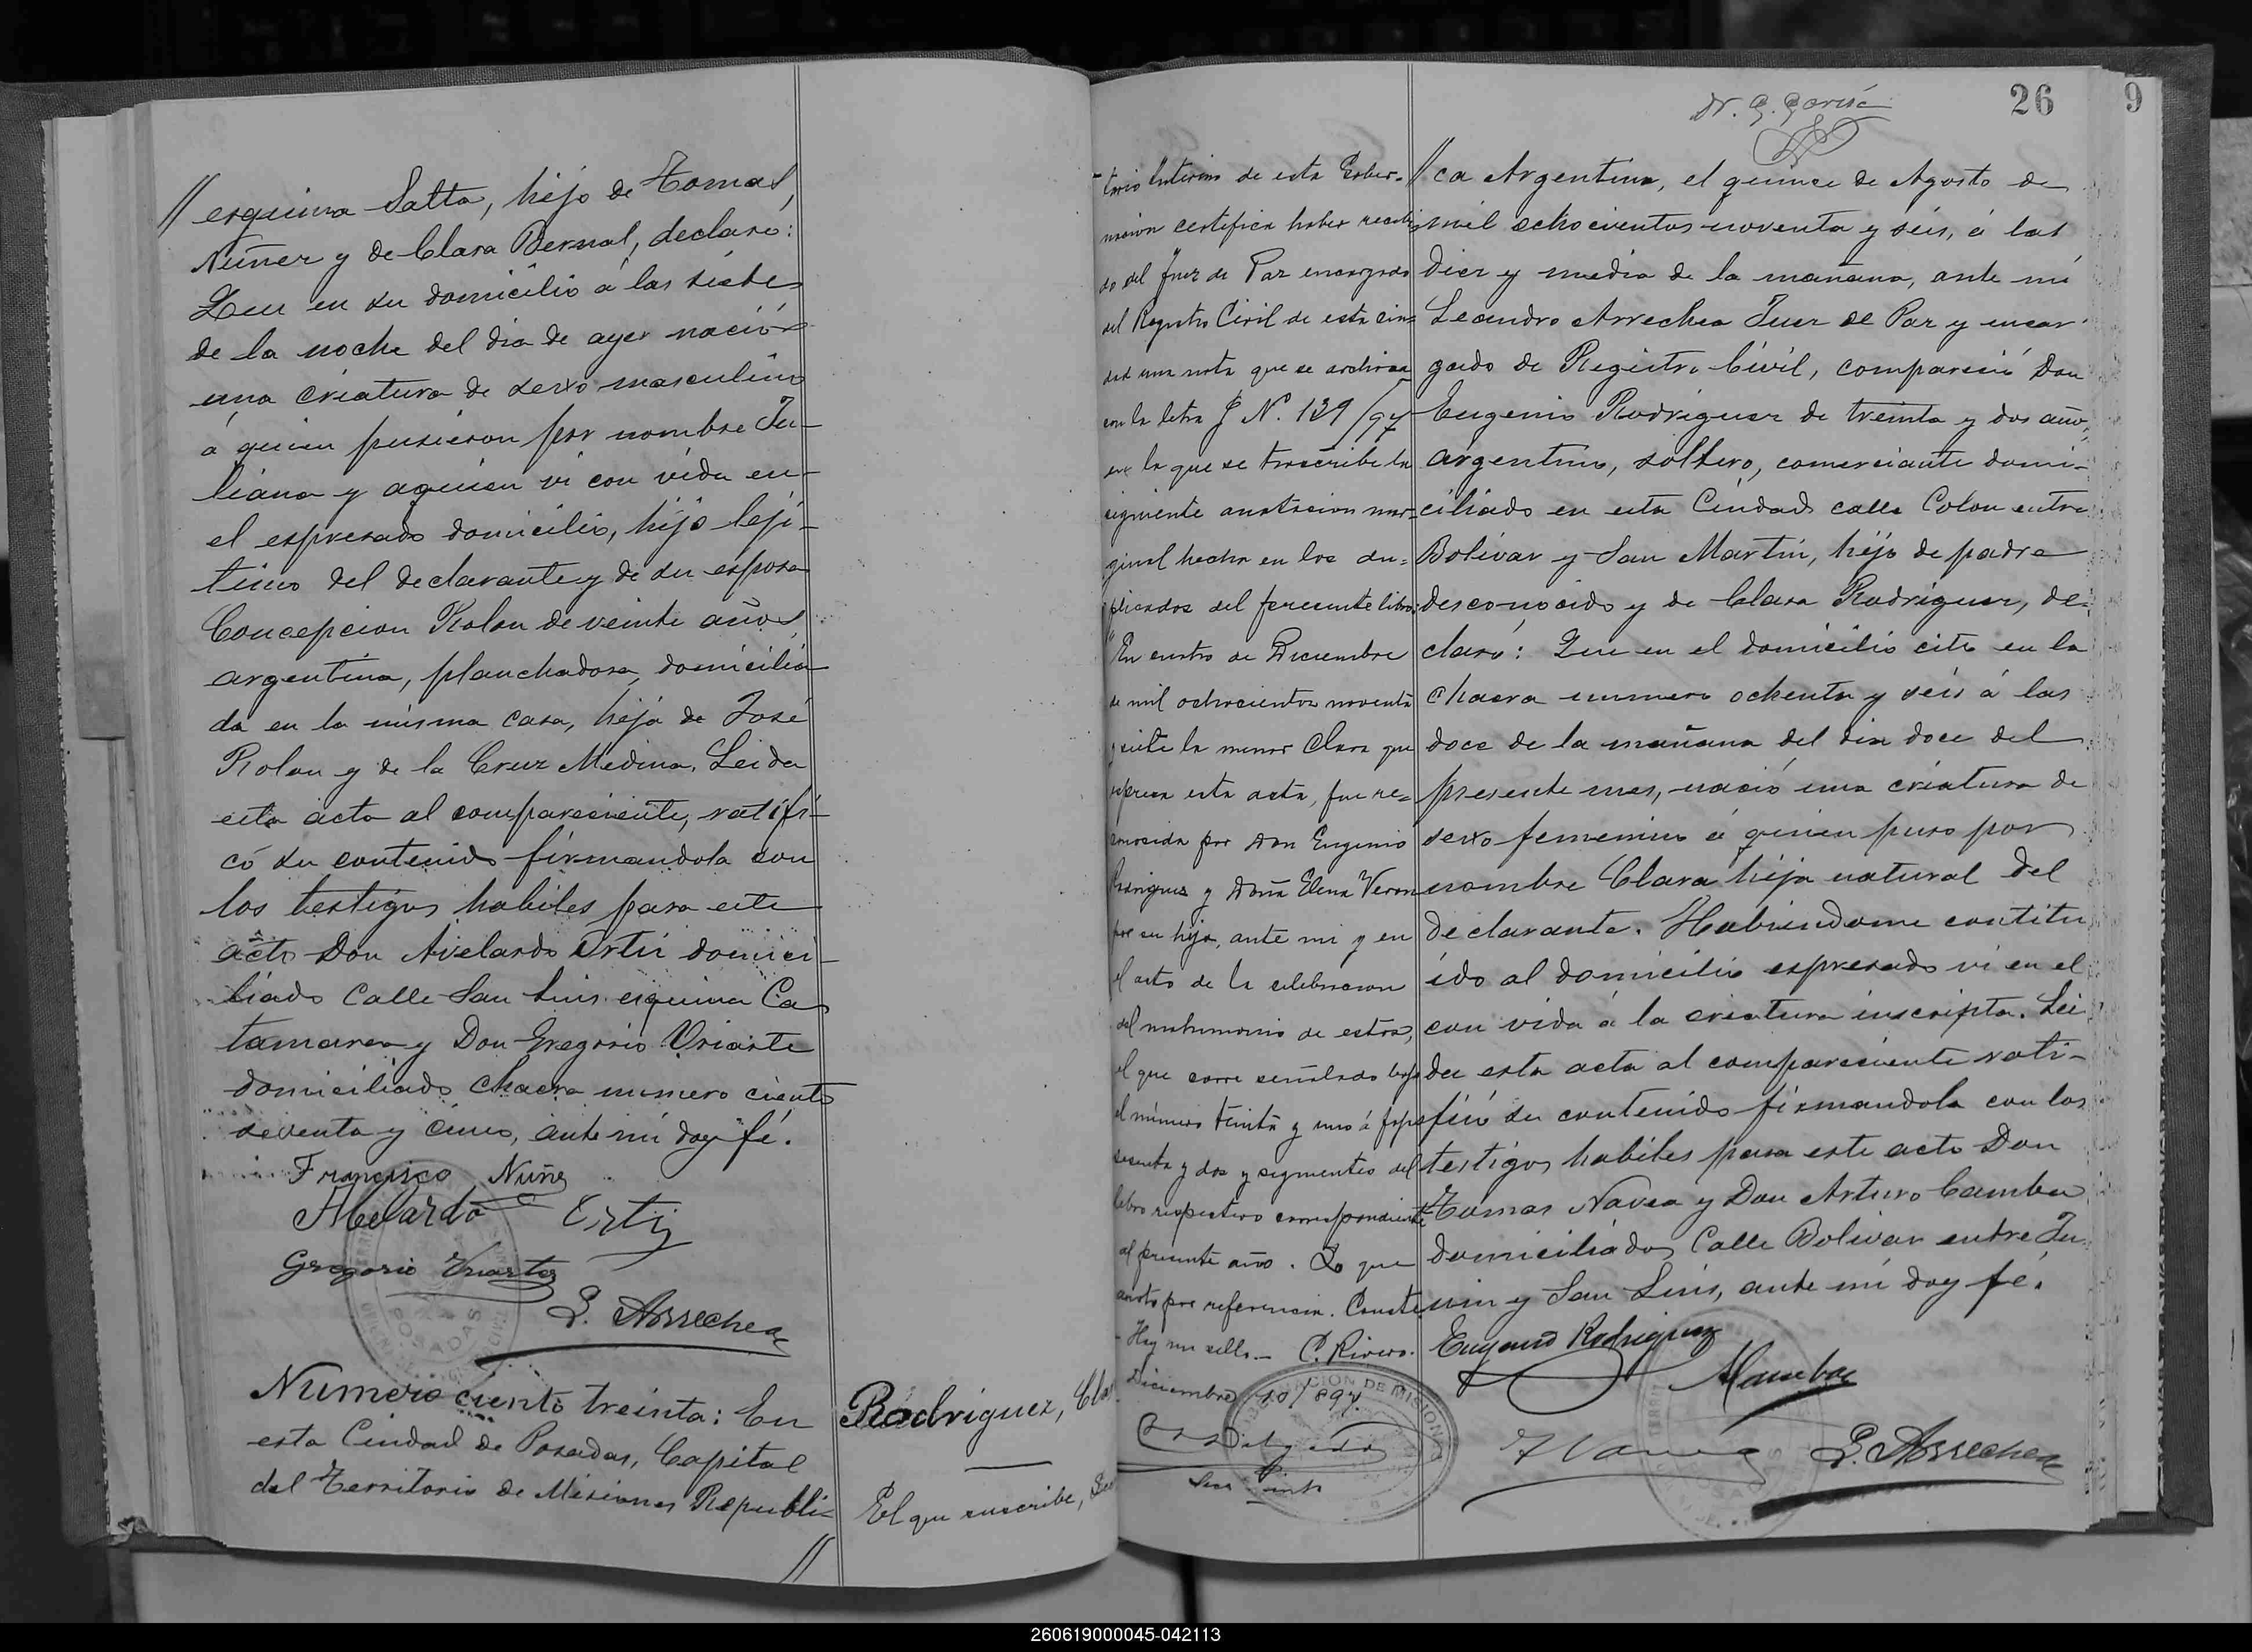 // esquina Salta, hijo de Tomas
Nuñez y de Clara Bernal, declaró:
Que en su domicilio á las siete
de la noche del dia de ayer nació
una criatura de sexo masculino
á quien pusieron por nombre Ju-
liano y aquien vi con vida en
el espresado domicilio, hijo leji-
timo del declarante y de su esposa
Concepcion Rolon de veinte años
argentina, planchadora, domicilia
da en la misma casa, hija de José
Rolon y de la Cruz Medina. Leida
esta acta al compareciente, ratifi-
có su contenido firmandola con
los testigos habiles para este
acto Don Avelardo Ortiz domici-
liado Calle San Luis esquina Ca
tamarca y Don Gregorio Uriarte
domiciliado chacra numero ciento
setenta y cinco, ante mí doy fé.
Francisco Nuñez
Abelardo Ortiz
Gregorio Uriarte
L. Arrechea
POSADAS
Numero ciento treinta: En
esta Ciudad de Posadas, Capital
del Territorio de Misiones Republi-
//
Rodriguez, Cla
El que suscribe, Se
tario Interino de esta Gober-
nacion certifica haber recibi
do del Juez de Paz encargado
del Registro Civil de esta ciu-
dad una nota que se archiva
con la letra J N.º 139/97
en la que se trascribe la
siguiente anotacion mar-
ginal hecha en los du-
plicados del presente libro:
"En cuatro de Diciembre
de mil ochocientos noventa
y siete la menor Clara que
espresa esta acta, fue re-
conocida por Don Eugenio
Rodriguez y Doña Elena Veron
por su hija, ante mi y en
el acto de la celebracion
del matrimonio de estos,
el que corre señalado bajo
el número treinta y uno á fojas
sesenta y dos y siguientes del
libro respectivo correspondiente
al presente año. Lo que
anoto por referencia. Conste
- Hay un sello - C. Rivero.
Diciembre 10/897
Delgado
Sec. Into
26
9
Dr. G. Garcia
// ca Argentina, el quince de Agosto de
mil ochocientos noventa y seis, á las
diez y media de la mañana, ante mí
Leandro Arrechea Juez de Paz y encar
gado de Registro Civil, compareció Don
Eugenio Rodriguez de treinta y dos año,
argentino, soltero, comerciante domi-
ciliado en esta Ciudad calle Colon entre
Bolivar y San Martin, hijo de padre
desconocido y de Clara Rodriguez, de-
claró: Que en el domicilio cito en la
chacra numero ochenta y seis á las
doce de la mañana del dia doce del
presente mes, nació una criatura de
sexo femenino á quien puso por
nombre Clara hija natural del
declarante. Habiendome contitu
ido al domicilio espresado vi en el
con vida á la criatura inscripta. Lei
da esta acta al compareciente rati-
ficó su contenido firmandola con los
testigos habiles para este acto Don
Tomas Navea y Don Arturo Camba
domiciliados Calle Bolivar entre Ju
nin y San Luis, ante mí doy fé.
Eugenio Rodriguez
ACamba
T Navea
L. Arrechea
260619000045-042113